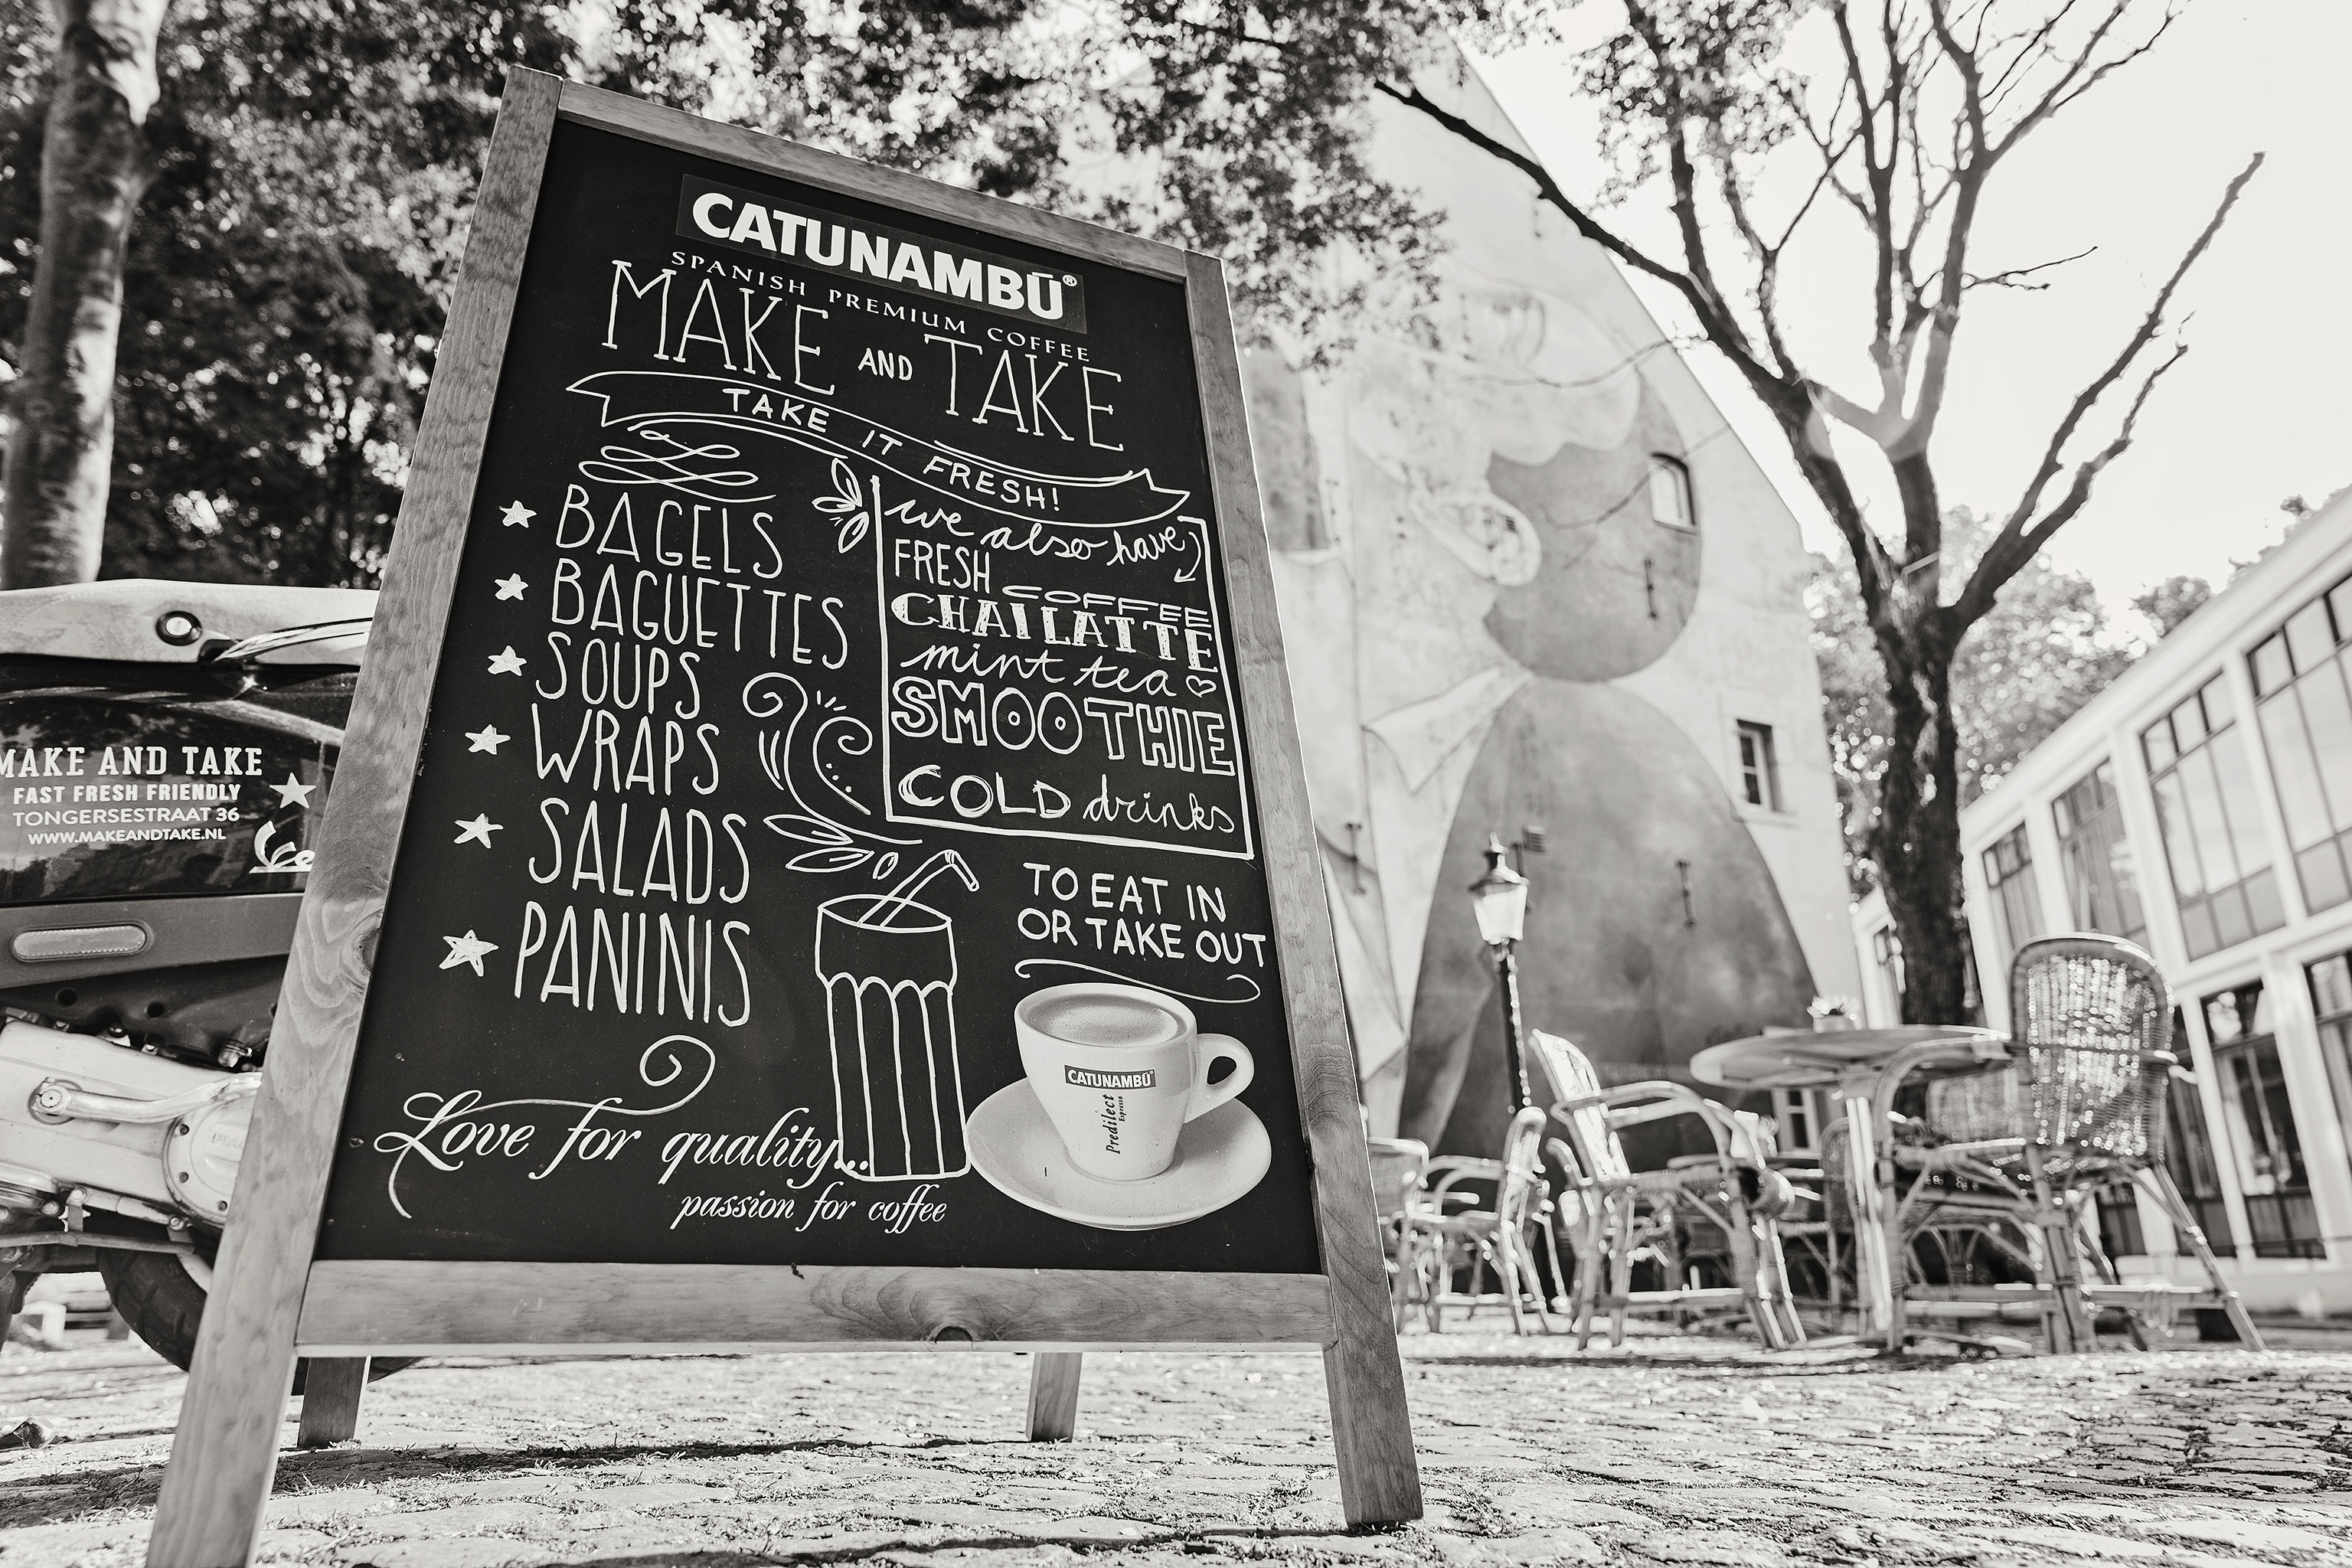 CATUNAMBŪ®
SPANISH PREMIUM COFFEE
MAKE AND TAKE
TAKE IT FRESH!
BAGELS
BAGUETTES
SOUPS
WRAPS
SALADS
PANINIS
we also have
FRESH COFFEE
CHAI LATTE
mint tea
SMOOTHIE
COLD drinks
TO EAT IN
OR TAKE OUT
CATUNAMBŪ
Predilect
Espresso
Love for quality...
passion for coffee
MAKE AND TAKE
FAST FRESH FRIENDLY
TONGERSESTRAAT 36
WWW.MAKEANDTAKE.NL